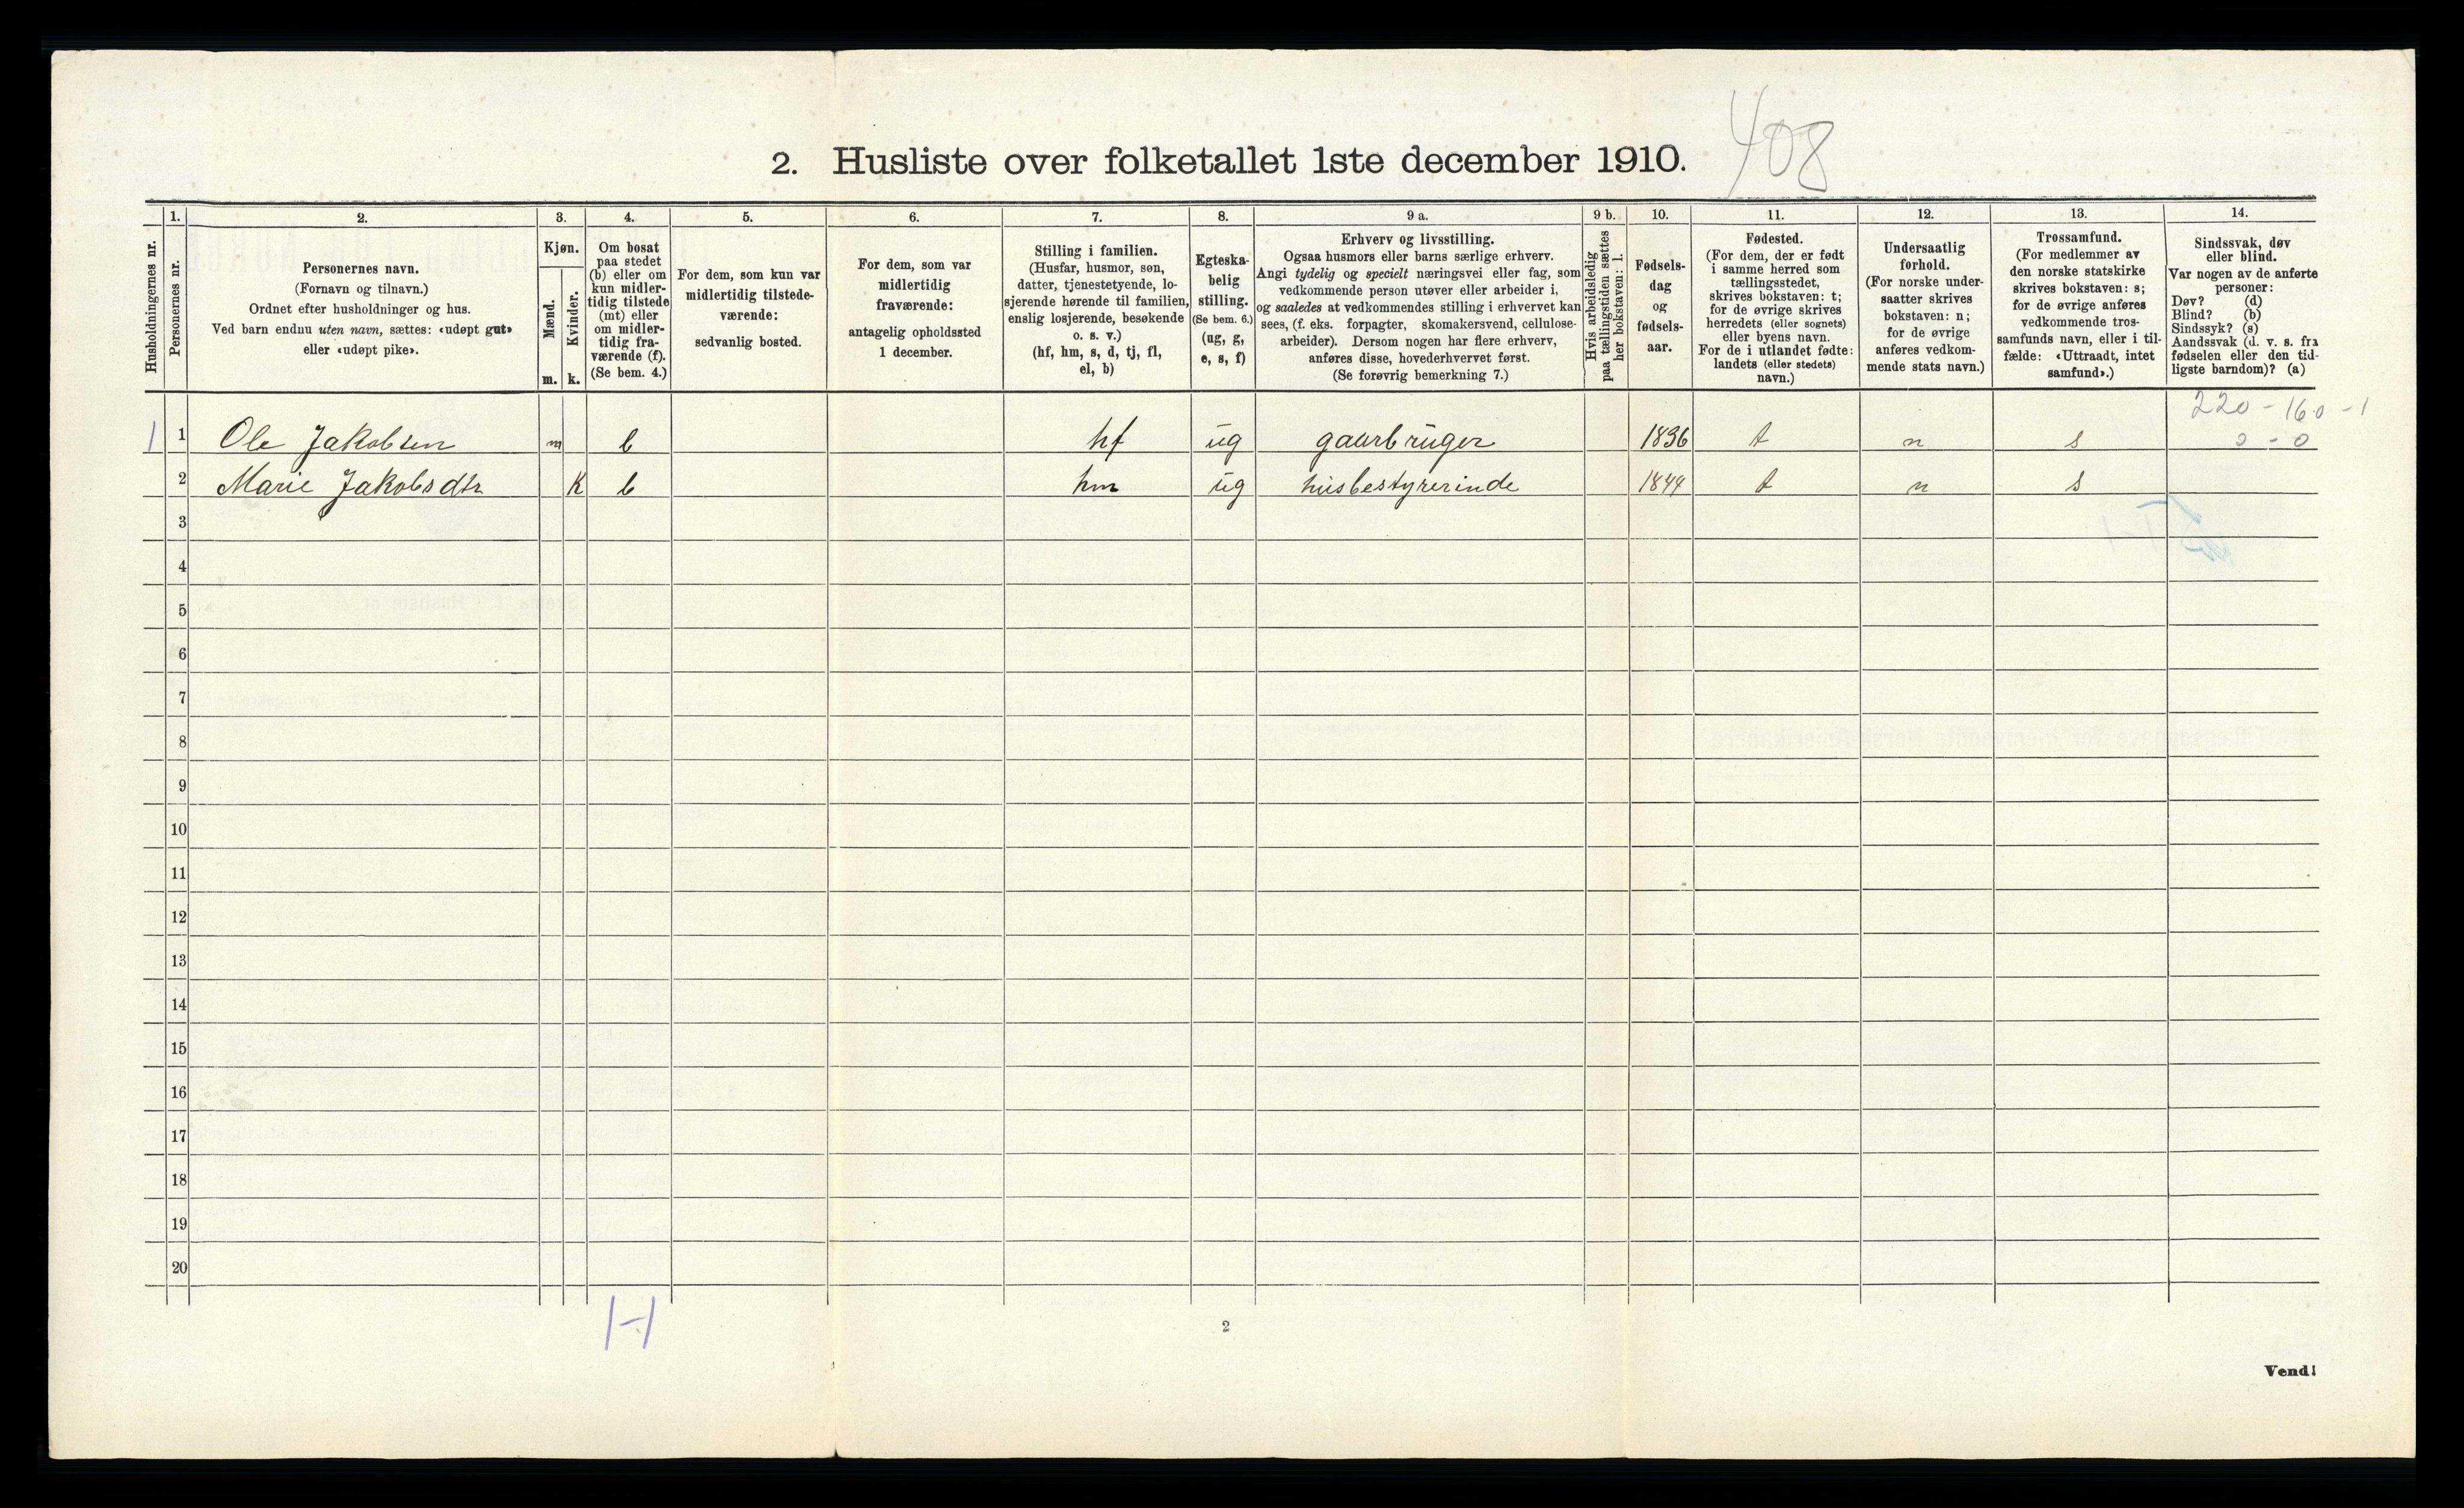 408
2. Husliste over folketallet 1ste december 1910.
Husholdningernes nr.
1.
Personernes nr.
2.
Personernes navn.
(Fornavn og tilnavn.)
Ordnet efter husholdninger og hus.
Ved barn endnu uten navn, sættes: «udøpt gut»
eller «udøpt pike».
3.
Kjøn.
Mænd.
Kvinder.
m. k.
4.
Om bosat
paa stedet
(b) eller om
kun midler-
tidig tilstede
(mt) eller
om midler-
tidig fra-
værende (f).
(Se bem. 4.)
5.
For dem, som kun var
midlertidig tilstede-
værende:
sedvanlig bosted.
6.
For dem, som var
midlertidig
fraværende:
antagelig opholdssted
1 december.
7.
Stilling i familien.
(Husfar, husmor, søn,
datter, tjenestetyende, lo-
sjerende hørende til familien,
enslig losjerende, besøkende
o. s. v.)
(hf, hm, s, d, tj, fl,
el, b)
8.
Egteska-
belig
stilling.
(Se bem. 6.)
(ug, g,
e, s, f)
9 a.
Erhverv og livsstilling.
Ogsaa husmors eller barns særlige erhverv.
Angi tydelig og specielt næringsvei eller fag, som
vedkommende person utøver eller arbeider i,
og saaledes at vedkommendes stilling i erhvervet kan
sees, (f. eks. forpagter, skomakersvend, cellulose-
arbeider). Dersom nogen har flere erhverv,
anføres disse, hovederhvervet først.
(Se forøvrig bemerkning 7.)
9 b.
Hvis arbeidsledig
paa tællingstiden sættes
her bokstaven: l.
10.
Fødsels-
dag
og
fødsels-
aar.
11.
Fødested.
(For dem, der er født
i samme herred som
tællingsstedet,
skrives bokstaven: t;
for de øvrige skrives
herredets (eller sognets)
eller byens navn.
For de i utlandet fødte:
landets (eller stedets)
navn.)
12.
Undersaatlig
forhold.
(For norske under-
saatter skrives
bokstaven: n;
for de øvrige
anføres vedkom-
mende stats navn.)
13.
Trossamfund.
(For medlemmer av
den norske statskirke
skrives bokstaven: s;
for de øvrige anføres
vedkommende tros-
samfunds navn, eller i til-
fælde: «Uttraadt, intet
samfund».)
14.
Sindssvak, døv
eller blind.
Var nogen av de anførte
personer:
Døv? (d)
Blind? (b)
Sindssyk? (s)
Aandssvak (d. v. s. fra
fødselen eller den tid-
ligste barndom)? (a)
220 - 160 - 1
1 1 Ole Jakobsen m b hf ug gaarbruger 1836 t n s 0 - 0
2 Marie Jakobsdtr K b hm ug husbestyrerinde 1844 t n s
3
4
5
6
7
8
9
10
11
12
13
14
15
16
17
18
19
20
1-1
2
Vend!